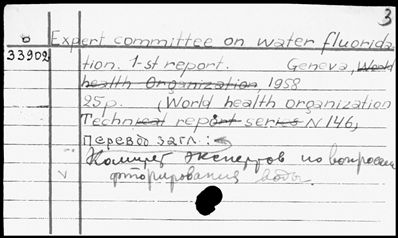 3
б Expert committee on water fluorida
33902 tion. 1-st report. Geneva, World
health Organization, 1958
25p. (World health organization
Technical report series N 146)
Перевод загл.:
Комитет экспертов по вопросам
фторирования воды.